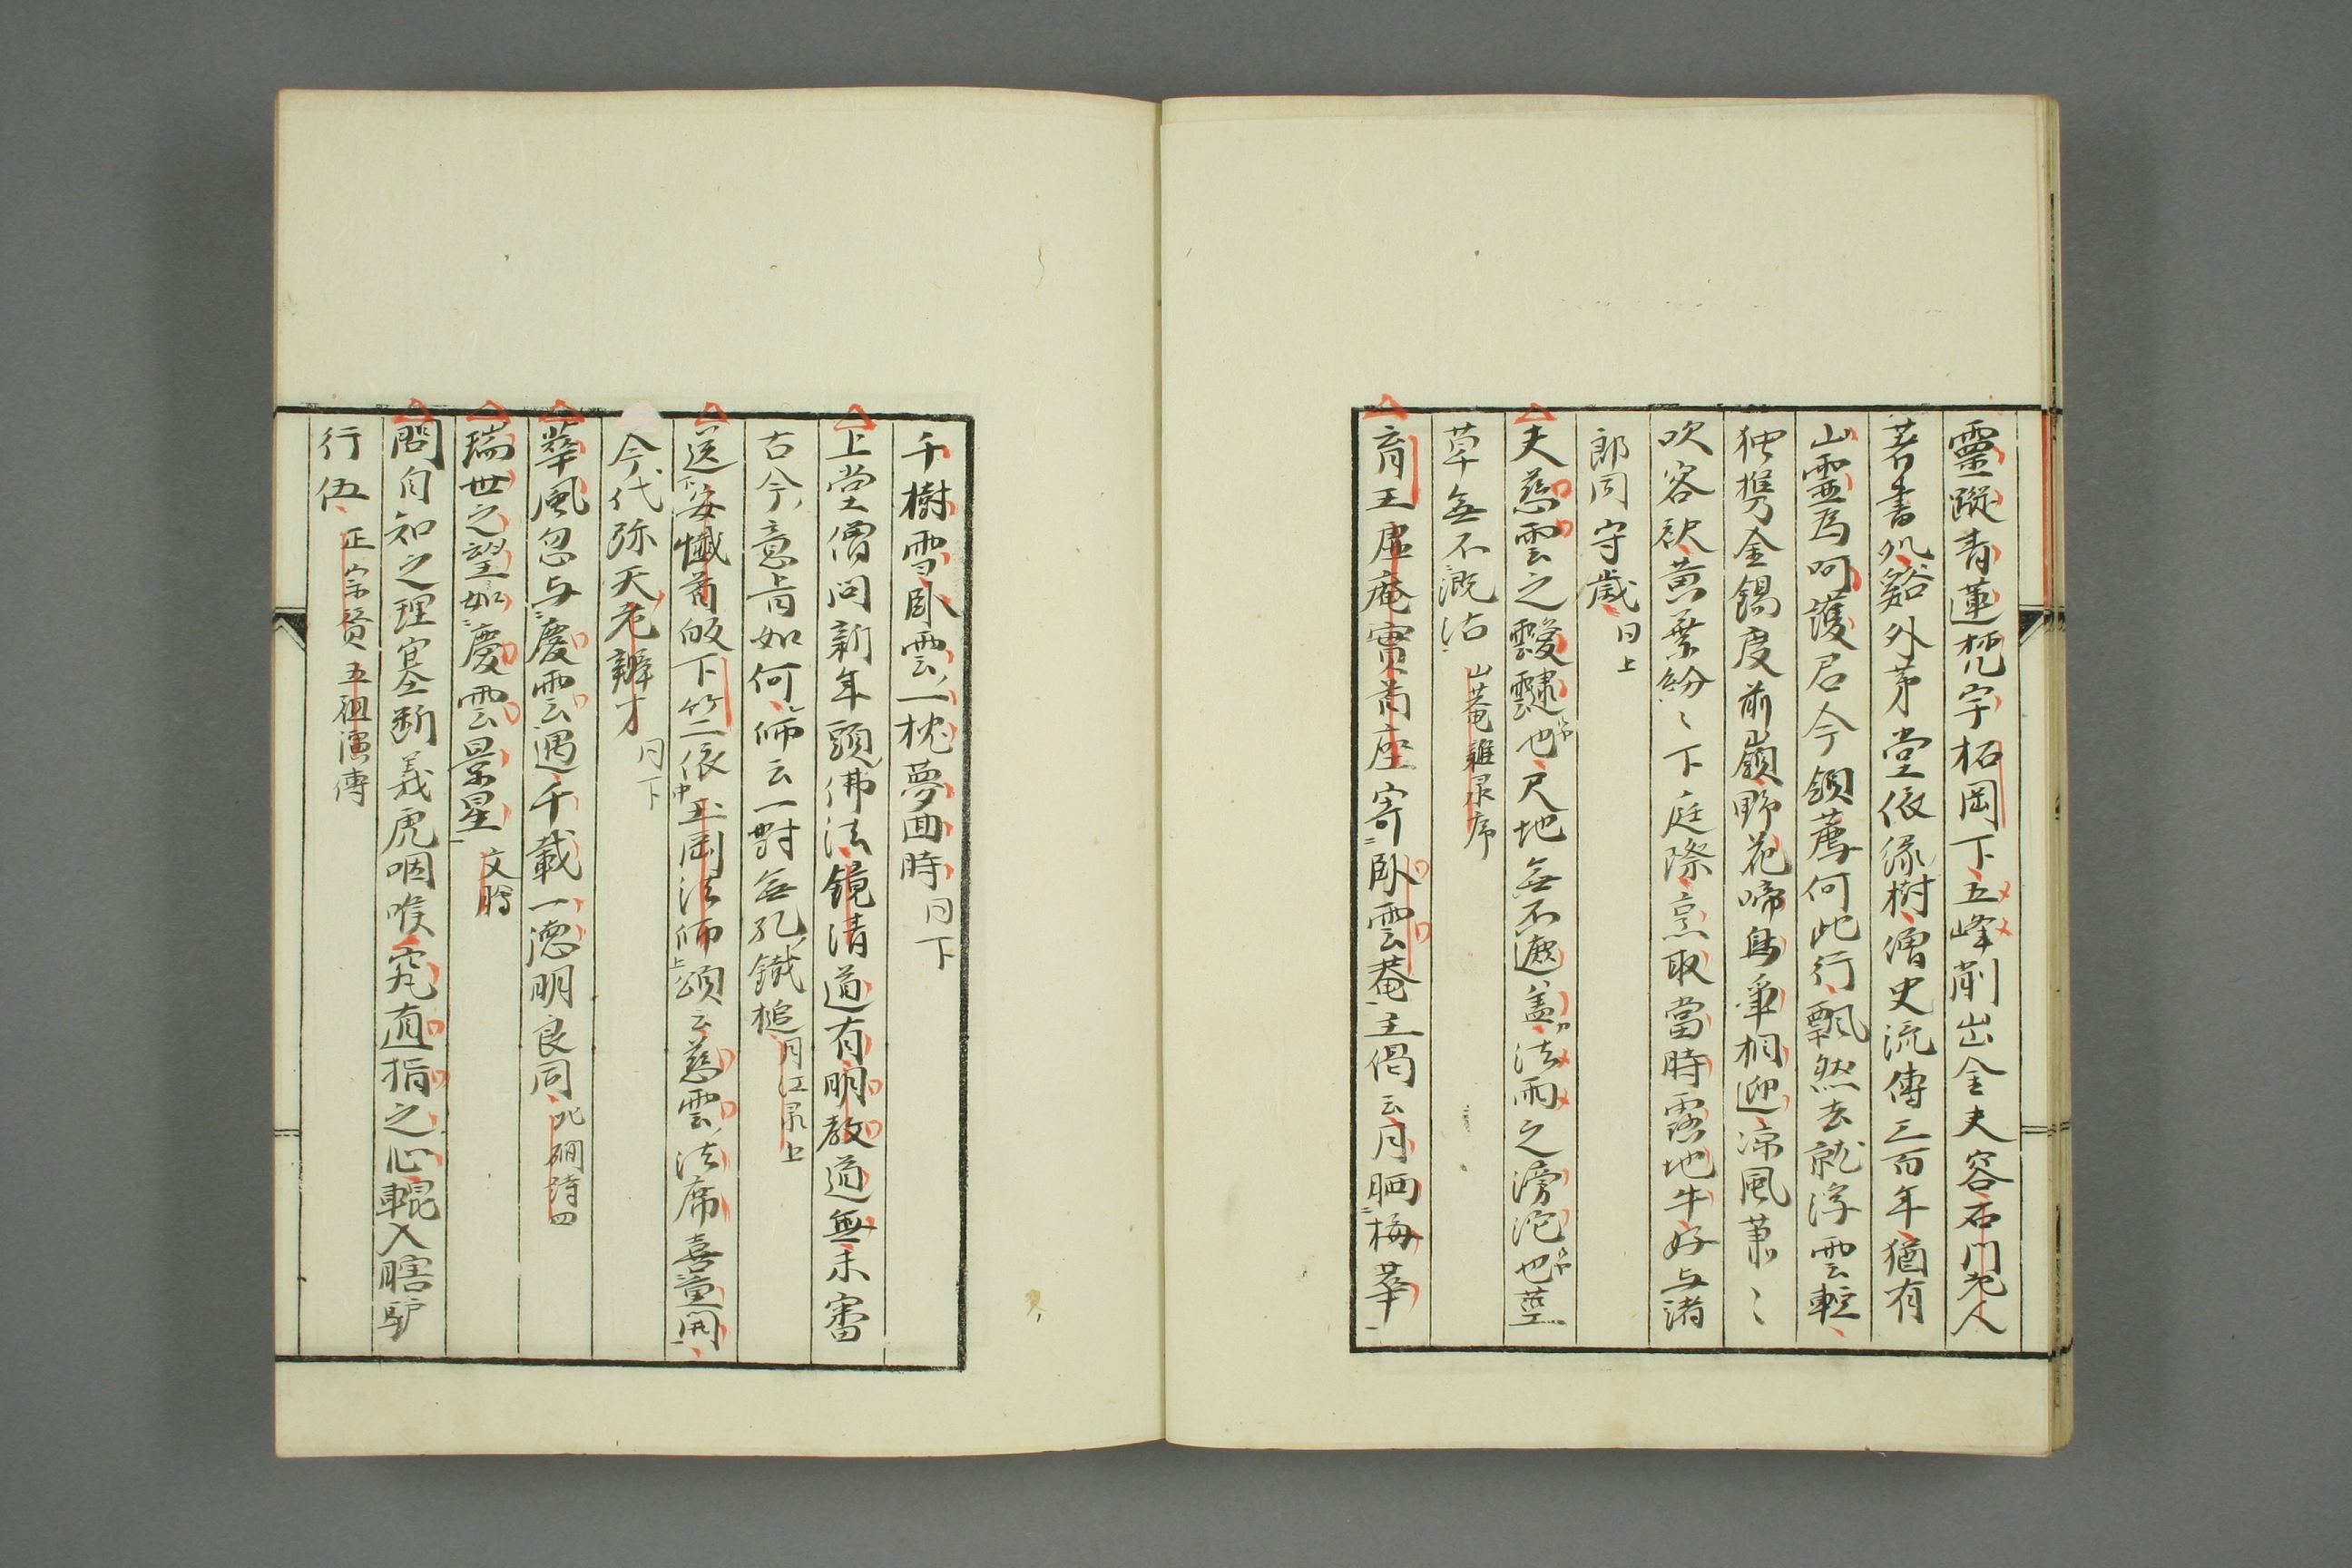 靈蹤青蓮梵宇柘岡下五峰削出金夫容石門老人
著書処谿外茅堂依緑樹僧史流傳三百年猶有
山霊為呵護君今領薦何此行飄然去就浮雲輕
独携金錫度前嶺野花啼鳥爭相迎凉風蕭〻
吹客袂黄葉紛〻下庭際烹取當時露地牛好与諸
郎同守歳 曰上
夫慈雲之靉靆也尺地無不遮盖法雨之滂沱也莖
草無不溉沽 山菴雜录序
育王虚庵實首座寄卧雲菴主偈云月晒梅華
千樹雪卧雲一枕夢回時 曰下
上堂僧問新年頭佛法鏡清道有明教道無未審
古今意旨如何師云一對無孔鐵槌 月江录上
送安懺首皈下竺二依玉岡法師頌云慈雲法席喜重開
今代弥天老辯才 同下
華風忽与慶雲遇千載一徳明良同 北磵詩四
瑞世之望如慶雲景星
問自知之理塞断義虎咽喉究直指之心輥入瞎驴
行伍 正宗賛五祖演傳